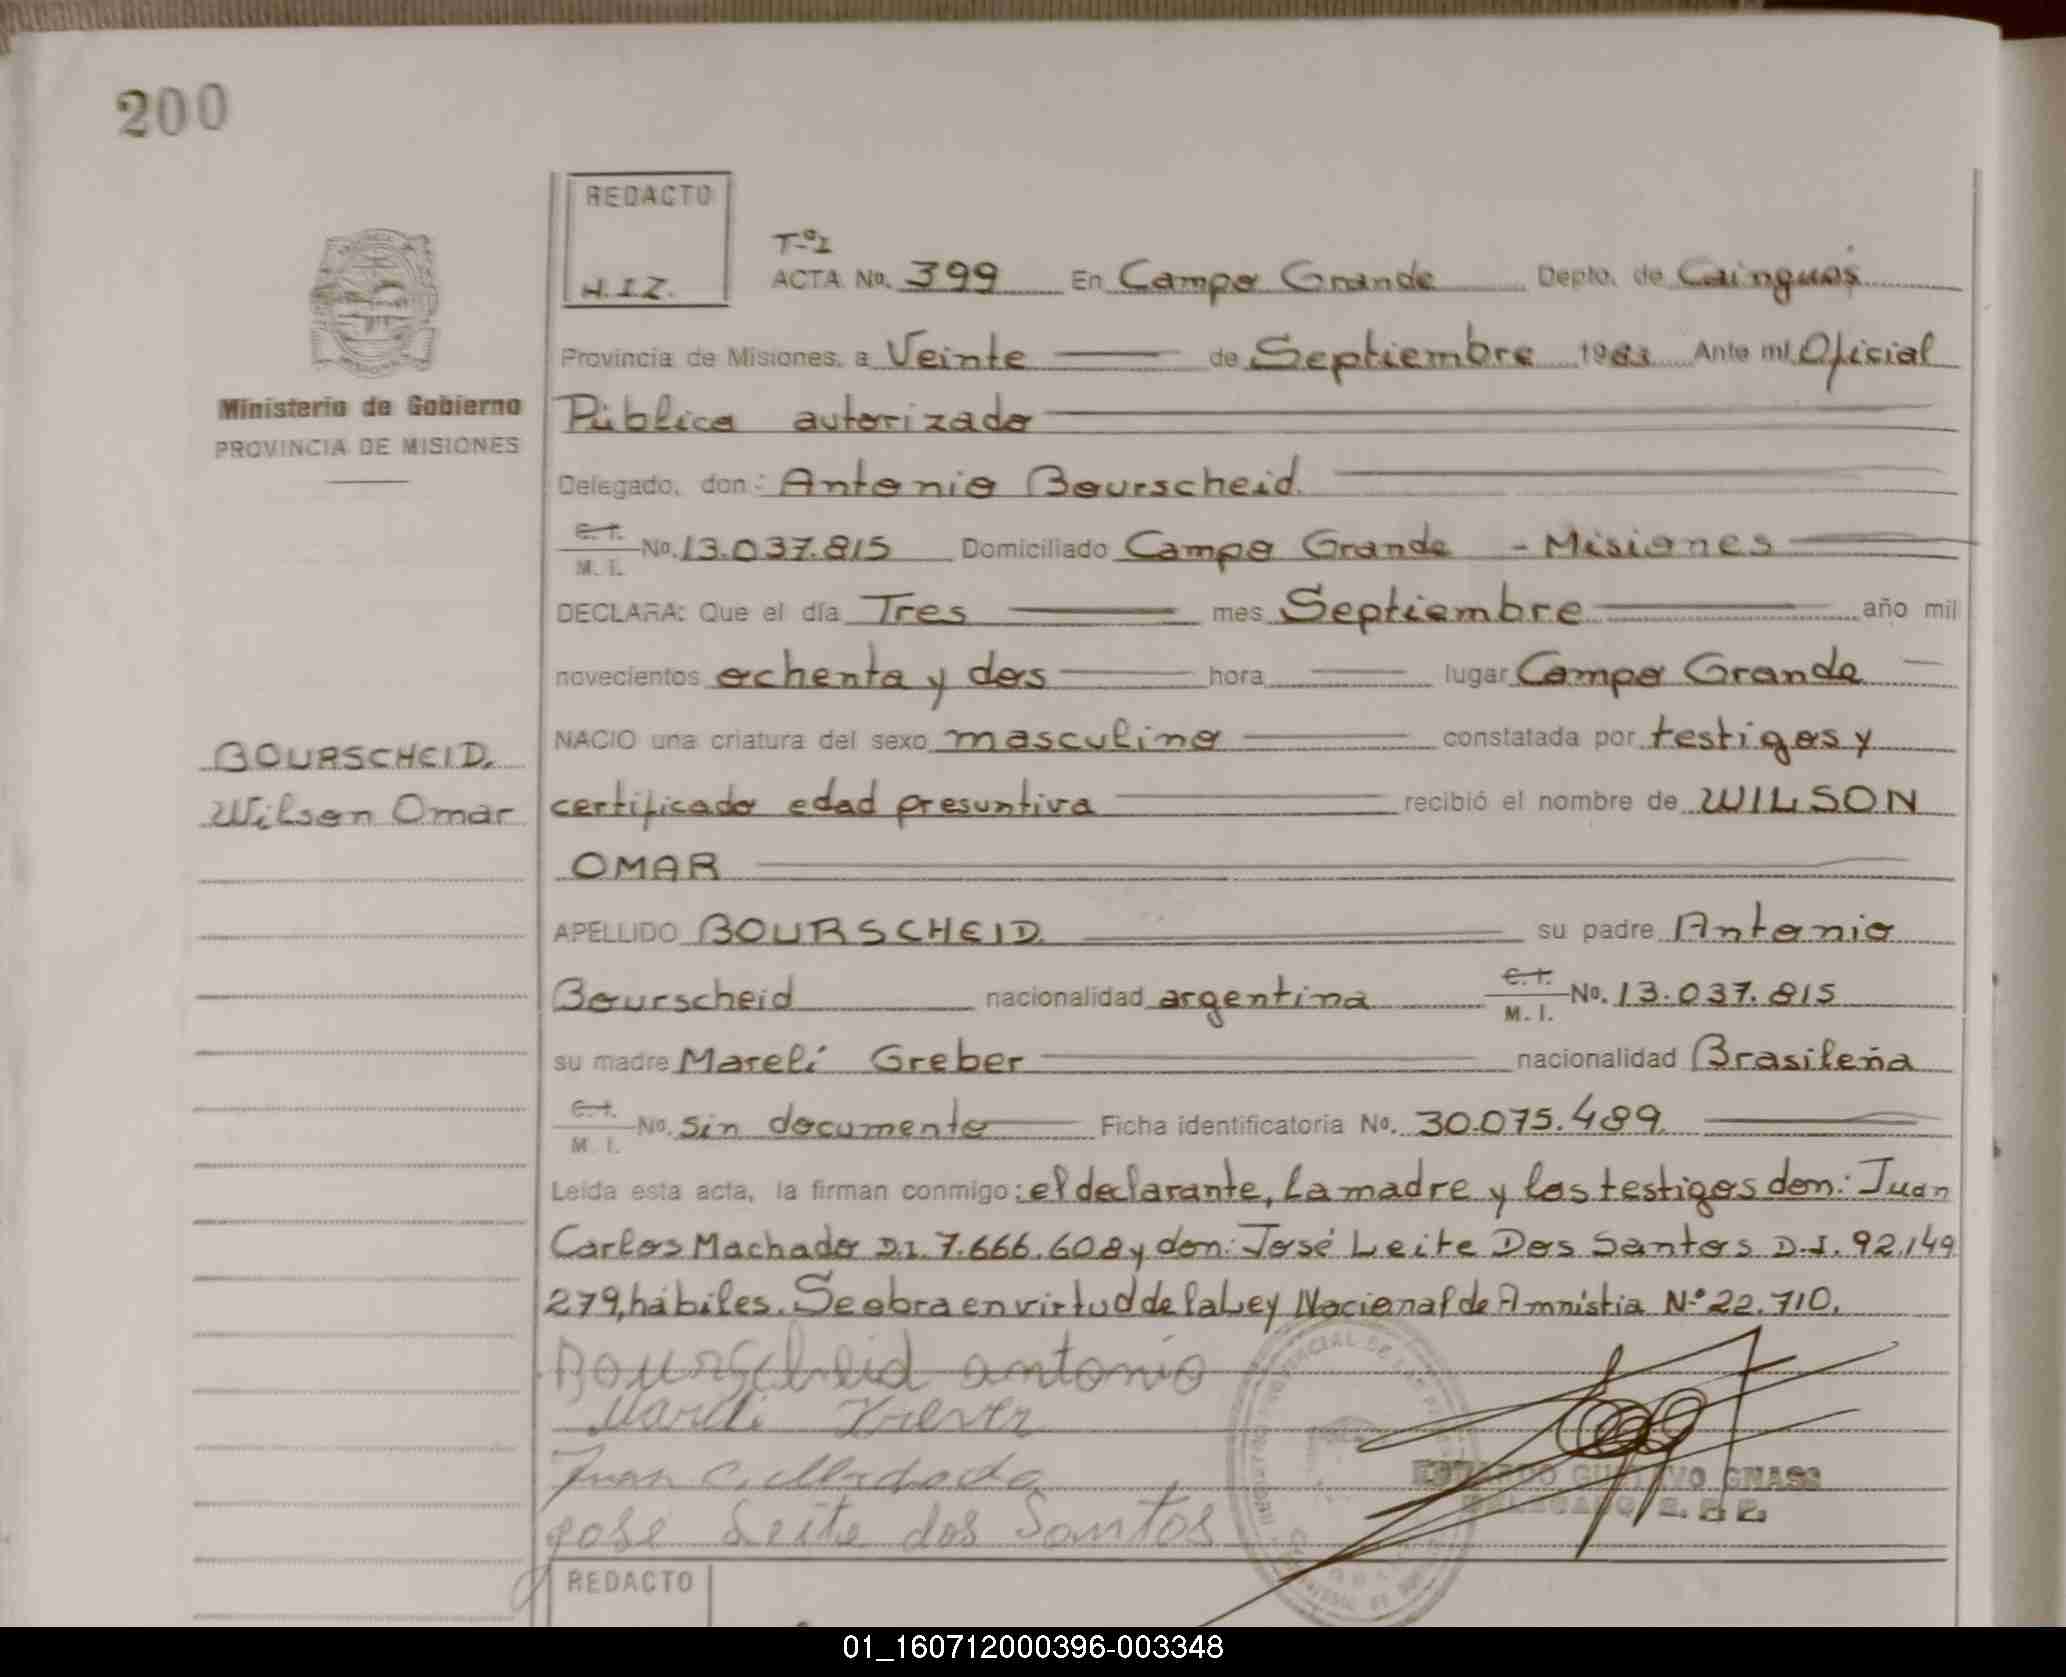 200
REDACTO
H.I.Z.
Tº1
ACTA No. 399 En Campo Grande Depto. de Cainguás
Provincia de Misiones, a Veinte de Septiembre 1983 Ante mí Oficial
Ministerio de Gobierno
PROVINCIA DE MISIONES
Público autorizado
Delegado, don: Antonio Bourscheid.
C.I.
M. I. No. 13.037.815 Domiciliado Campo Grande - Misiones
DECLARA: Que el día Tres mes Septiembre año mil
novecientos ochenta y dos hora lugar Campo Grande
NACIO una criatura del sexo masculino constatada por testigos y
BOURSCHEID.
Wilson Omar
certificado edad presuntiva recibió el nombre de WILSON
OMAR
APELLIDO BOURSCHEID su padre Antonio
Bourscheid nacionalidad argentina C.I. M. I. No. 13.037.815
su madre Marelí Greber nacionalidad Brasileña
C.I.
M. I. No. sin documento Ficha identificatoria No. 30.075.489.
Leída esta acta, la firman conmigo: el declarante, la madre y los testigos don: Juan
Carlos Machado D.I. 7.666.608 y don: José Leite Dos Santos D.I. 92.149
279, hábiles. Se obra en virtud de la Ley Nacional de Amnistia Nº 22.710.
Bourscheid antonio
Juan C. Machado
jose Leite dos Santos
GUSTAVO GNASS
DELEGADO
REDACTO
01_160712000396-003348